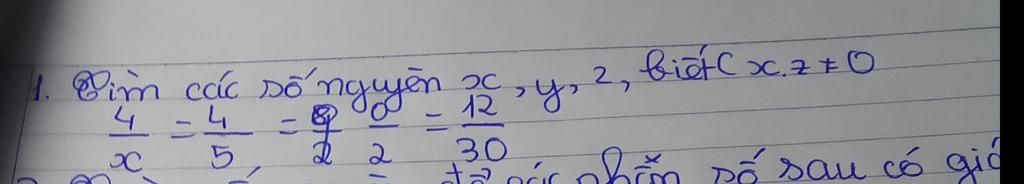 1. Tìm các số nguyên x, y, z, biết (x.z ≠ 0
4/x = 4/5 = 0/2 = 12/30
từ các phân số sau có giá